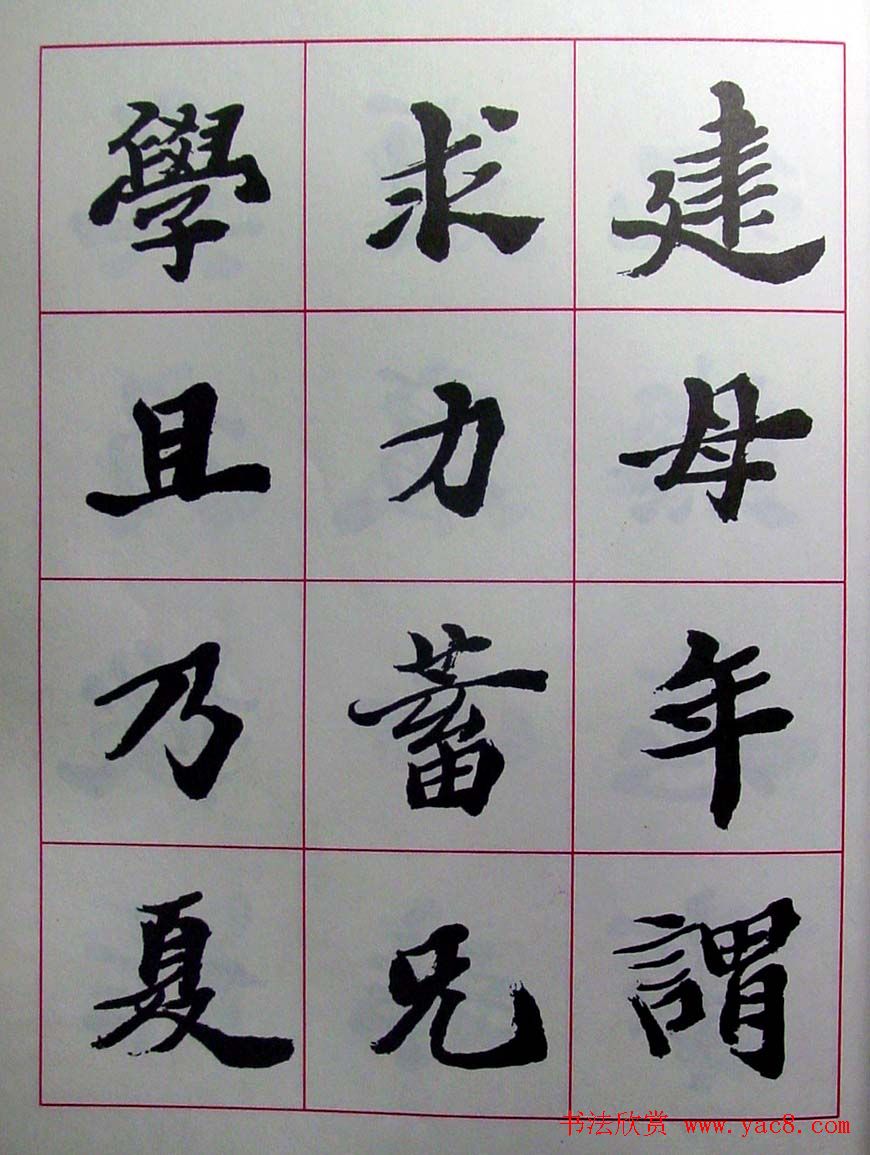 建母年謂
求力蓄兄
學且乃夏
书法欣赏 www.yac8.com